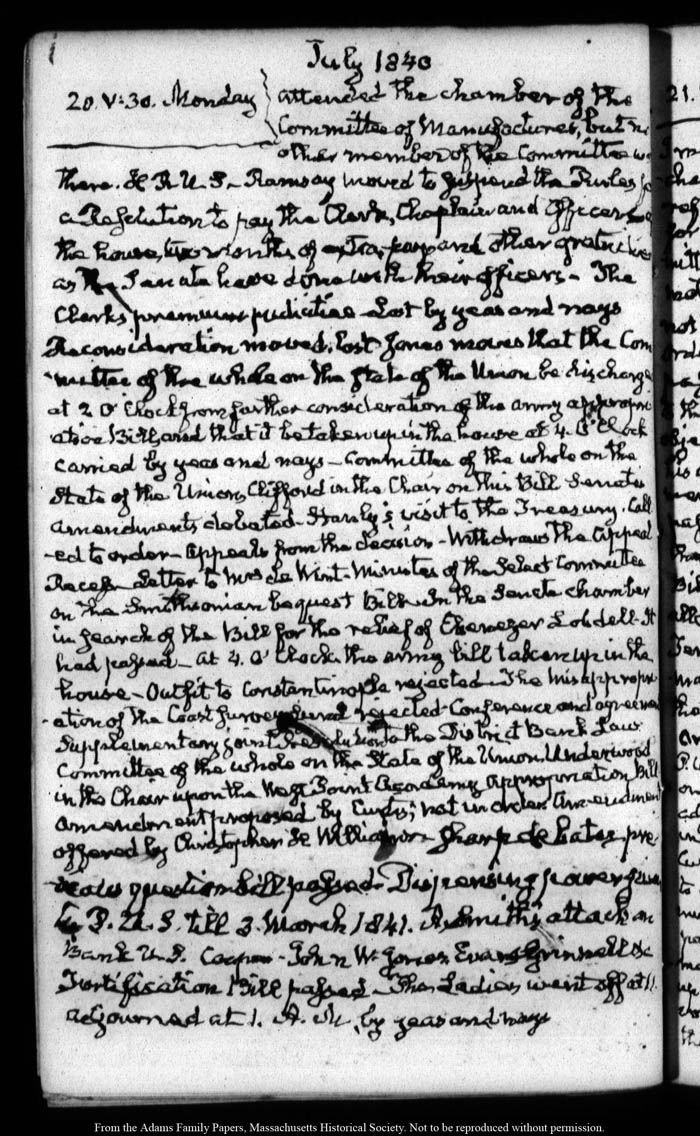 July 1840
20. V:30. Monday
attended the chamber of the
Committee of Manufactures, but no
other member of the Committee
there. H. R. U. S. Ramsay moved to suspend the Rules
a Resolution to pay the Clerk, Chaplain and Officers
the house, two months of extra-pay and other
as the Senate have done with their officers - The
Clerks premium pudicitiae - Lost by yeas and nays
Reconsideration moved, lost Jones moves that the Com
mittee of the whole on the State of the Union be discharge
at 2 O'Clock from further consideration of the army appropri
ation Bill, and that it be taken up in the house at 4. O'Clock
carried by yeas and nays - Committee of the whole on the
State of the Union, Clifford in the Chair on this Bill Senates
amendments debated - Stanly's visit to the Treasury. Call
-ed to order - appeals from the decision - Withdraws the appeal
Recess - Letter to Mrs de Wint - Minutes of the Select Committee
on the Smithsonian bequest Bill - In the Senate chamber
in search of the Bill for the relief of Ebenezer Lobdell - It
had passed - At 4. O'Clock the army bill taken up in the
house - Outfit to Constantinople rejected - The misappropri
-ation of the Coast Survey rejected - Conference and
Supplementary joint Resolution to the District Bank Law
Committee of the whole on the State of the Union. Underwood
in the Chair upon the West Point Academy Appropriation Bill
amendment proposed by Curtis; not in order. Amendment
offered by Christopher H Williams - sharp debates pre
question bill passed. Dispensing power
P. U. S. till 3. March 1841. A. Smith's attack on
Bank U. S. Cooper - John W. Jones Evans Grinnell &c
Fortification Bill passed - The Ladies went off at 11.
adjourned at 1. A. M. by yeas and nays
21.
From the Adams Family Papers, Massachusetts Historical Society. Not to be reproduced without permission.